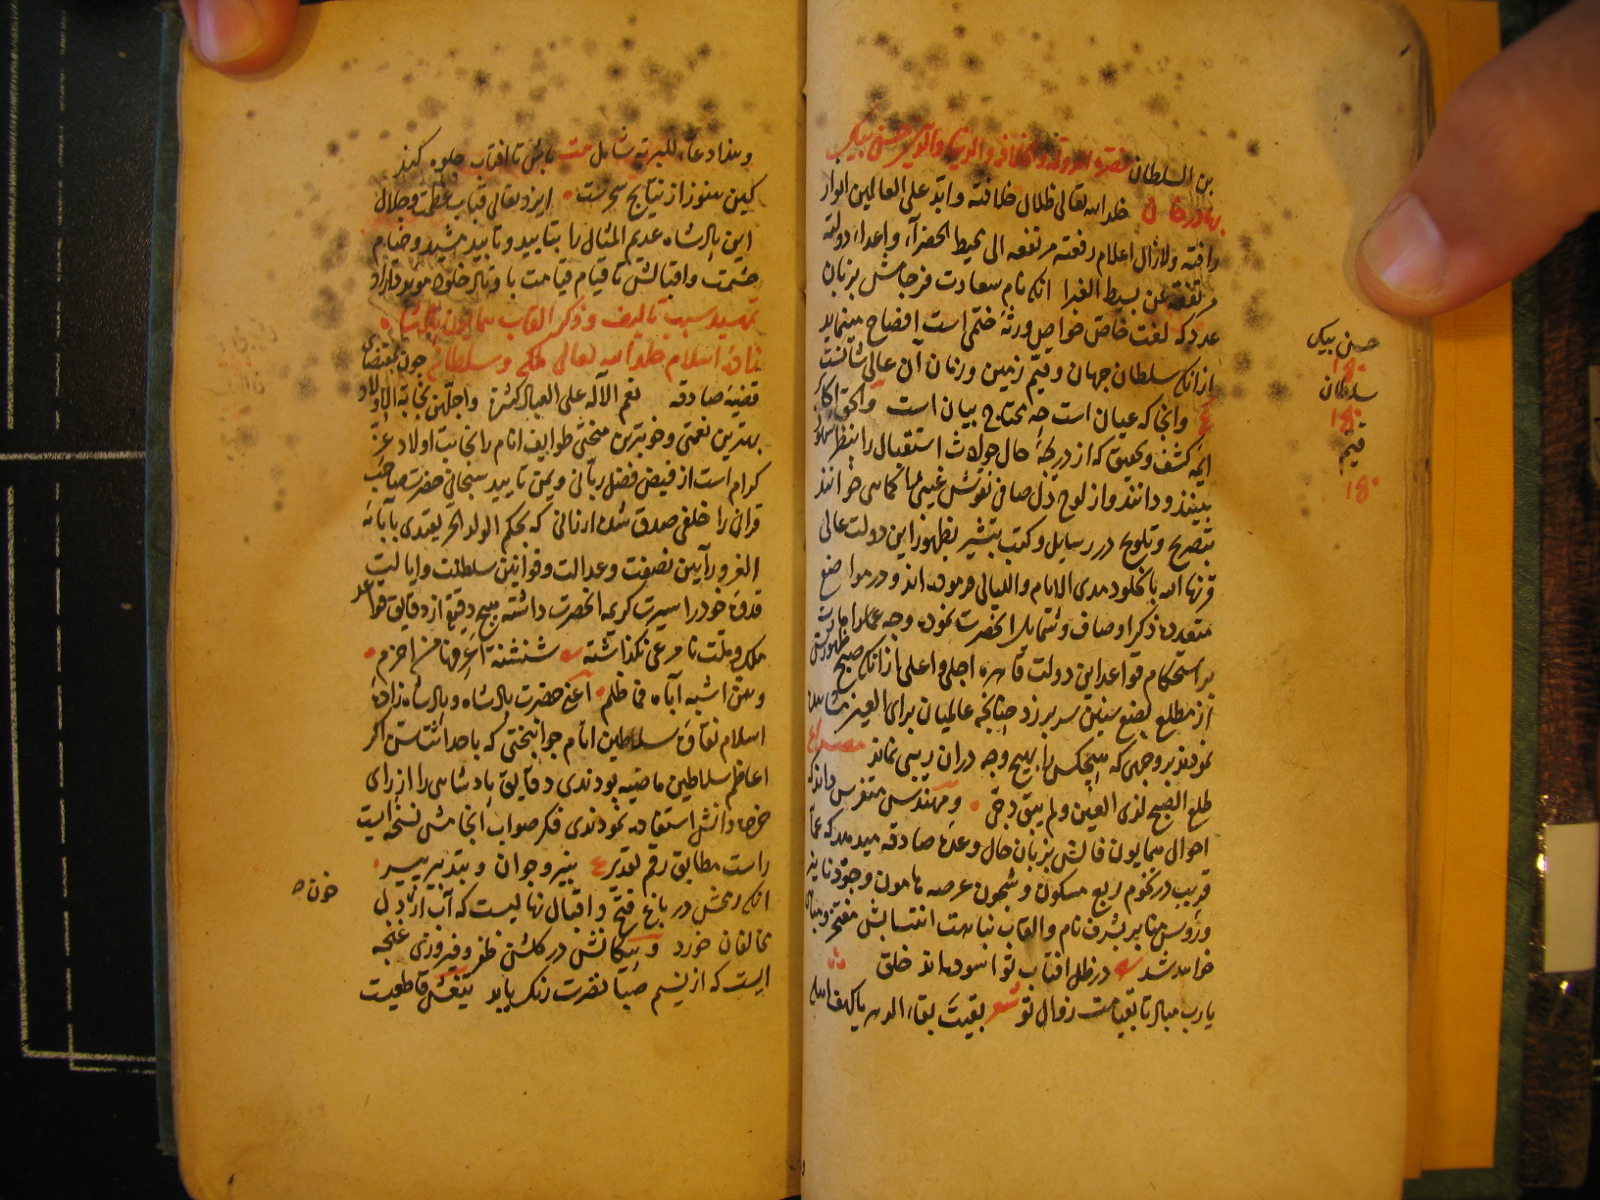 بن السلطان
بهادرخان خلد الله تعالی ظلال خلافته و ابد علی العالمین انوار
رافته ولازال اعلام رفعته مرتفعه الی محیط الخضراء واعداء دولته
عن بسیط الغبرا آنکه نام سعادت فرجامش بزبان
عدد که لغت خاص خواص ورثهٔ ختمی است افصاح مینماید
از آنکه سلطان جهان و قیّم زمین و زمان آن عالی شانست
ع وانجا که عیان است چه محتاج بیان است و
ایمه کشف و تحقیق که از دریچهٔ حال حوادث استقبال را
بینند و دانند و از لوح دل صافی نقوش غیبی کماهی خوانند
بتصریح و تلویح در رسایل و کتب تبشیر بظهور این دولت عالی
قرنها الله بالخلود مدی الایام واللیالی فرموده‌اند و در مواضع
متعدده ذکر اوصاف و شمایل انحضرت نموده وجه
بر استحکام قواعد این دولت قاهره اجلی و اعلی از آنکه صبح
از مطلع بضع سنین سر برزد چنانچه عالمیان برای العین مشاهده
نمودند بروجهی که هیچکس را بهیچ وجه دران ریبی نماند مصراع
طلع الصبح لذی العین ولم یبق دجی و مهندس متفرس داند که
احوال همایون فالش بزبان حال وعدهٔ صادقه میدهد که
قریب در تخوم ربع مسکون و شجون عرصه هامون وجوه دنانیر
و رؤس منابر بشرف نام و القاب نباهت انتسابش مفتخر و
خواهد شد در ظل افتاب تو اسوده‌اند خلق
یارب مباد تا بقیامت زوال تو شعر بقیت بقاء الدهر یا کهف اهله
حسن بیک
سلطان
قیم
باش تا افتاب جلوه کند
کین هنوز از نتایج سحرست ایزد تعالی قباب عظمت و جلال
این پادشاه عدیم المثال را بتابید و تایید مشید و خیام
حشمت و اقبالش تا قیام قیامت باوتاد خلود موبد داراد
تمهید سبب تالیف و ذکر القاب همایون
اسلام خلد الله تعالی ملکه و سلطانه چون بمقتضای
قضیهٔ صادقه نعم الاله علی العباد کثیرة واجلهن نجابة الاولاد
بهترین نعمتی و خوبترین منحتی طوایف انام را نجابت اولاد عزّ
کرام است از فیض فضل ربانی و یمن تایید سبحانی حضرت صاحب
قران را خلفی صدق شده ارزانی که بحکم الولد الحر یقتدی بابائه
الغر در آیین نصفت و عدالت و قوانین سلطنت و ایالت
قدوهٔ خود را سیرت کریمه انحضرت داشته هیچ دقیقه از دقایق قواعد
ملک و ملت نامرعی نگذاشته شنشنة اعرفها من اخزم
و من اشبه اباه فما ظلم اعنی حضرت پادشاه و پادشاه زادهٔ
اسلام سلاطین ایام جوانبختی که با حداثت سن اکر
اعاظم سلاطین ماضیه بودندی دقایق پادشاهی را از رای
دانش استفاده نمودندی فکر صواب انجامش نسخه ایست
راست مطابق رقم تقدیر ع ببر و جوان و بتدبیر پیر
انکه رمحش در باغ فتح و اقبال نهالیست که آب از دل
مخالفان خورد و پیکانش در گلشن ظفر و فیروزی غنچه
ایست که از نسیم صبا نصرت رنک یابد تیغش قاطعیت
خون